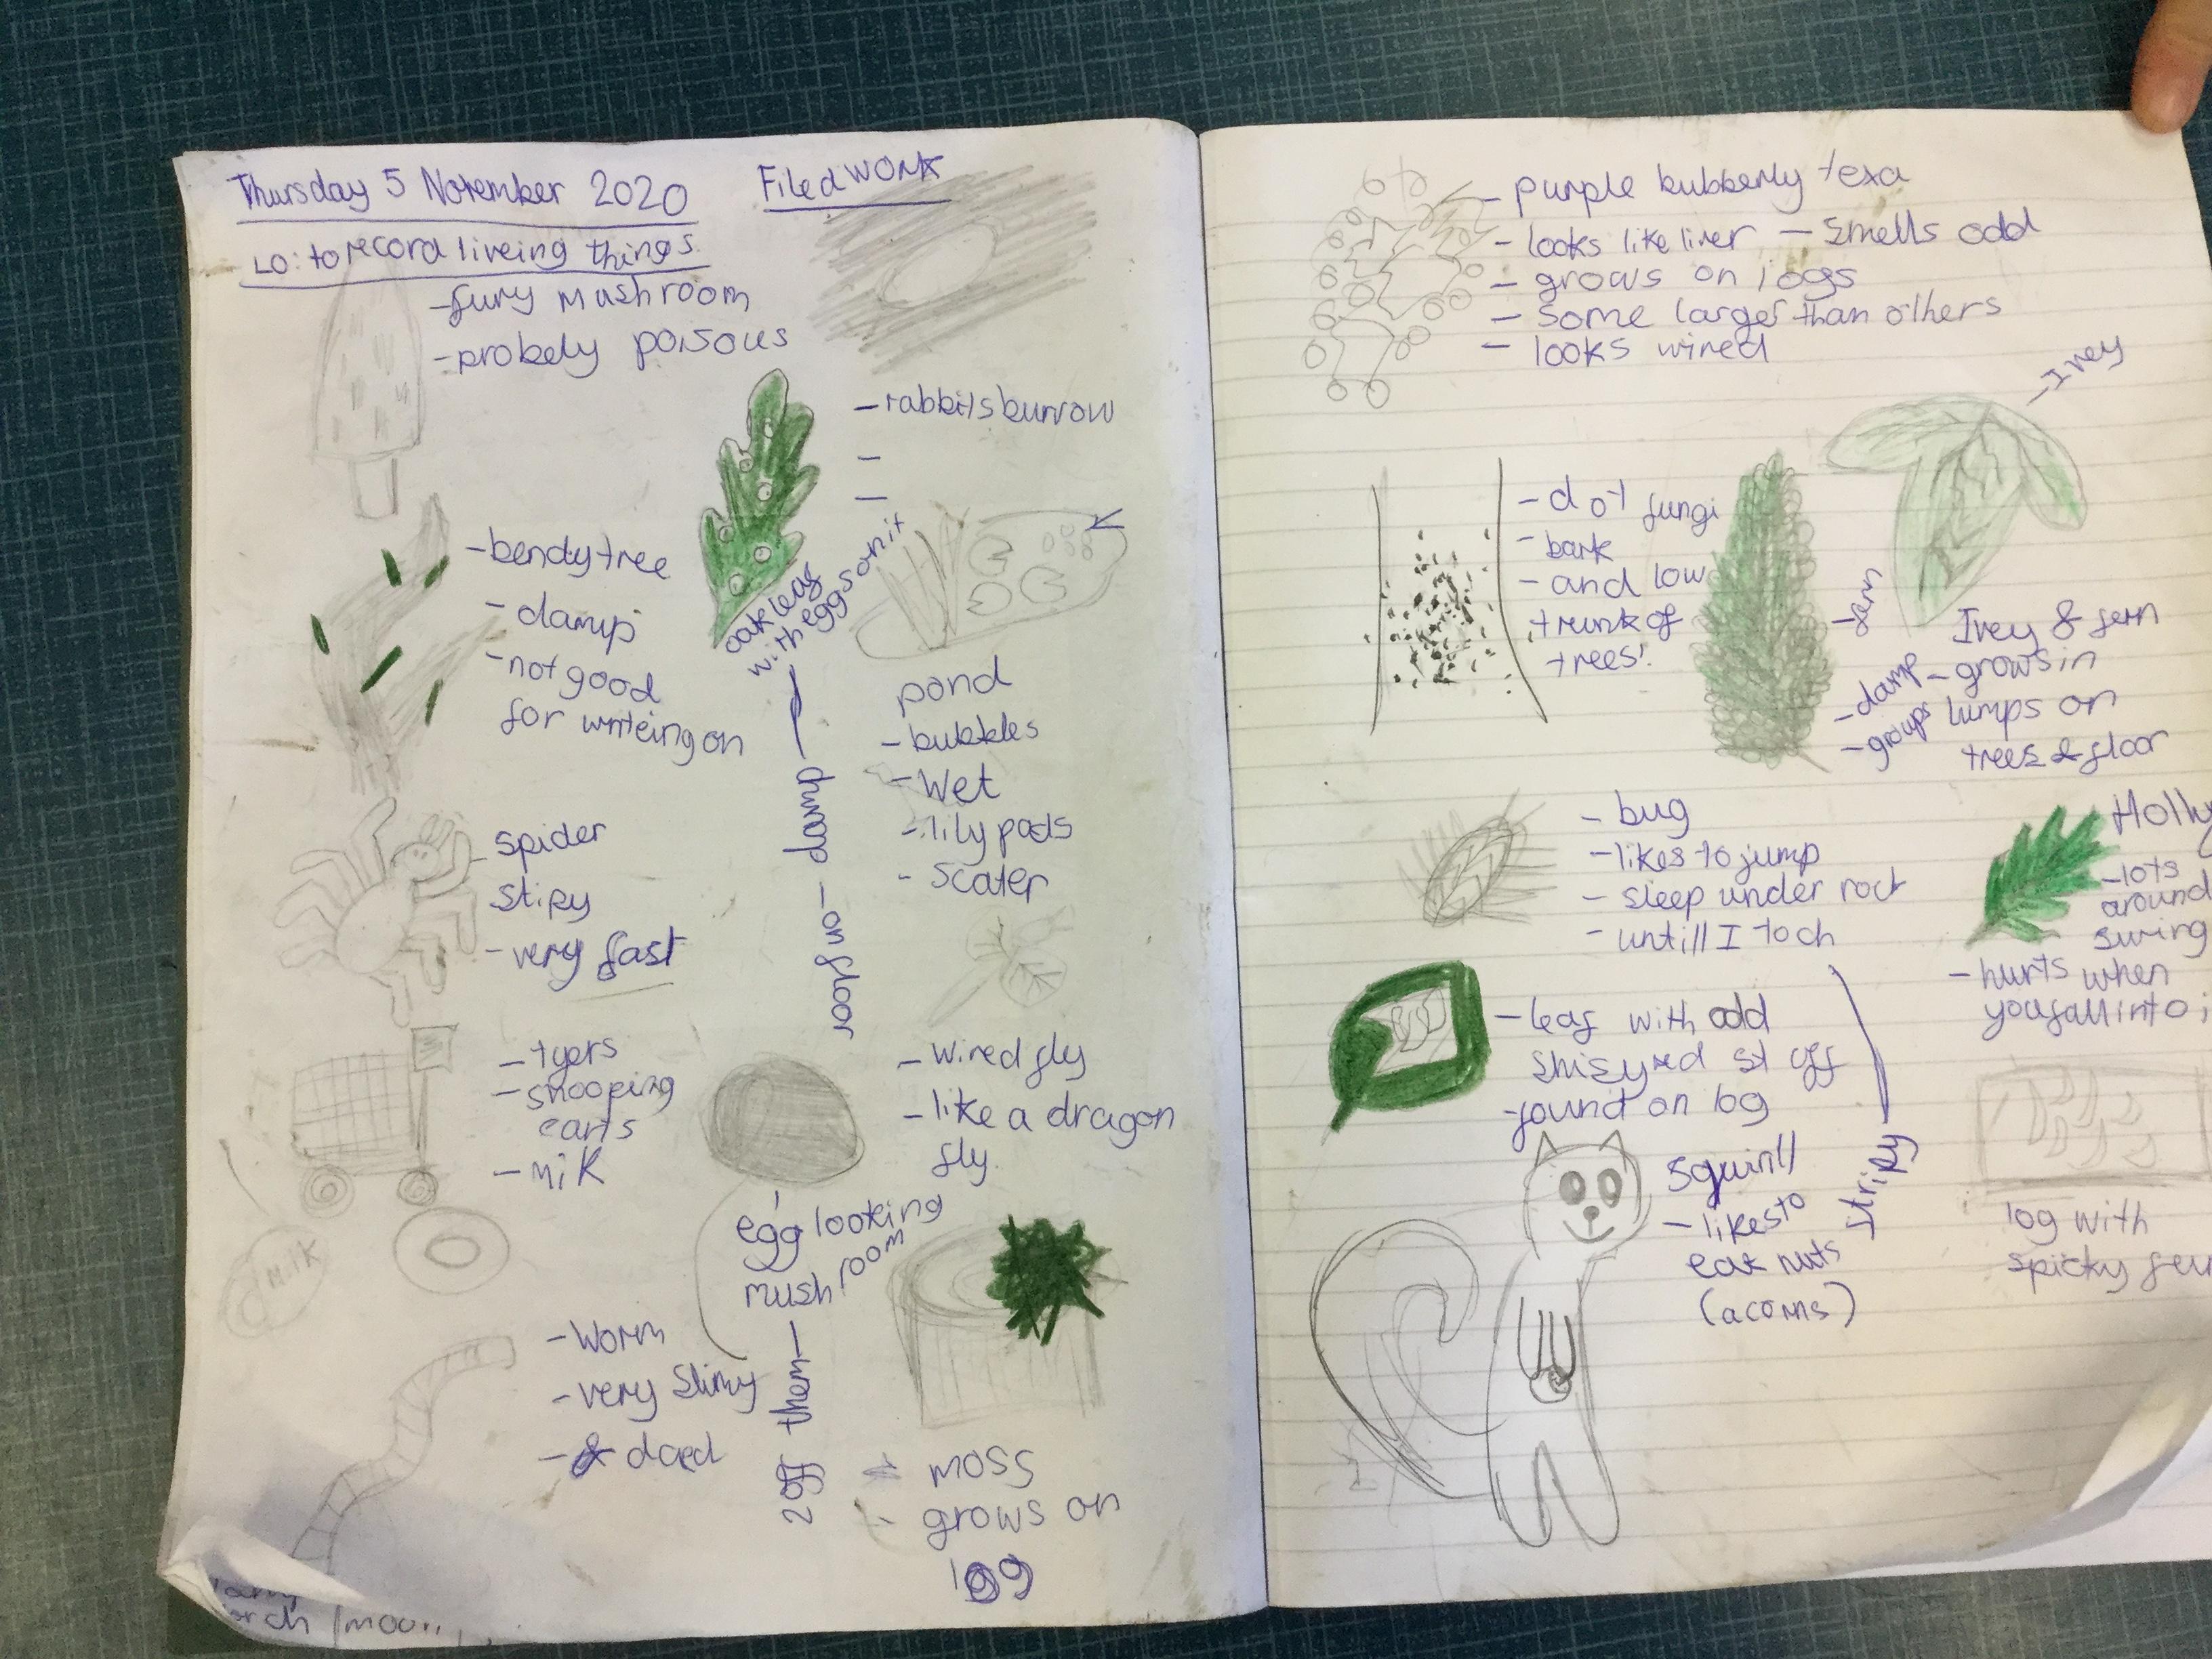 Thursday 5 November 2020
Filed work
LO: to record liveing things.
- fury mushroom
- probely poisous
- rabbits burrow
-
-
oak leaf
with eggs on it
- damp - on floor
- bendy tree
- damp
- not good
for writeing on
pond
- bubbles
- wet
- lily pads
- scater
spider
stipy
- very fast
- tyers
- shooping
carts
- milk
milk
- wired fly
- like a dragon
fly.
egg looking
mush room
2 off them
- worm
- very slimy
- dded
moss
- grows on
log
- purple bubberly texa
- looks like liver - smells odd
- grows on logs
- some larger than others
- looks wired
- Ivey
- dot fungi
- bark
- and low
trunk of
trees!
- fern
Ivey & fern
- damp
- groups
- grows in
lumps on
trees & floor
- bug
- likes to jump
- sleep under rock
- untill I toch
stripy
Holly
- lots
around
swing
- hurts when
you fall into i
- leaf with odd
found on log
squirll
- likes to
eat nuts
(acorns)
log with
spicky